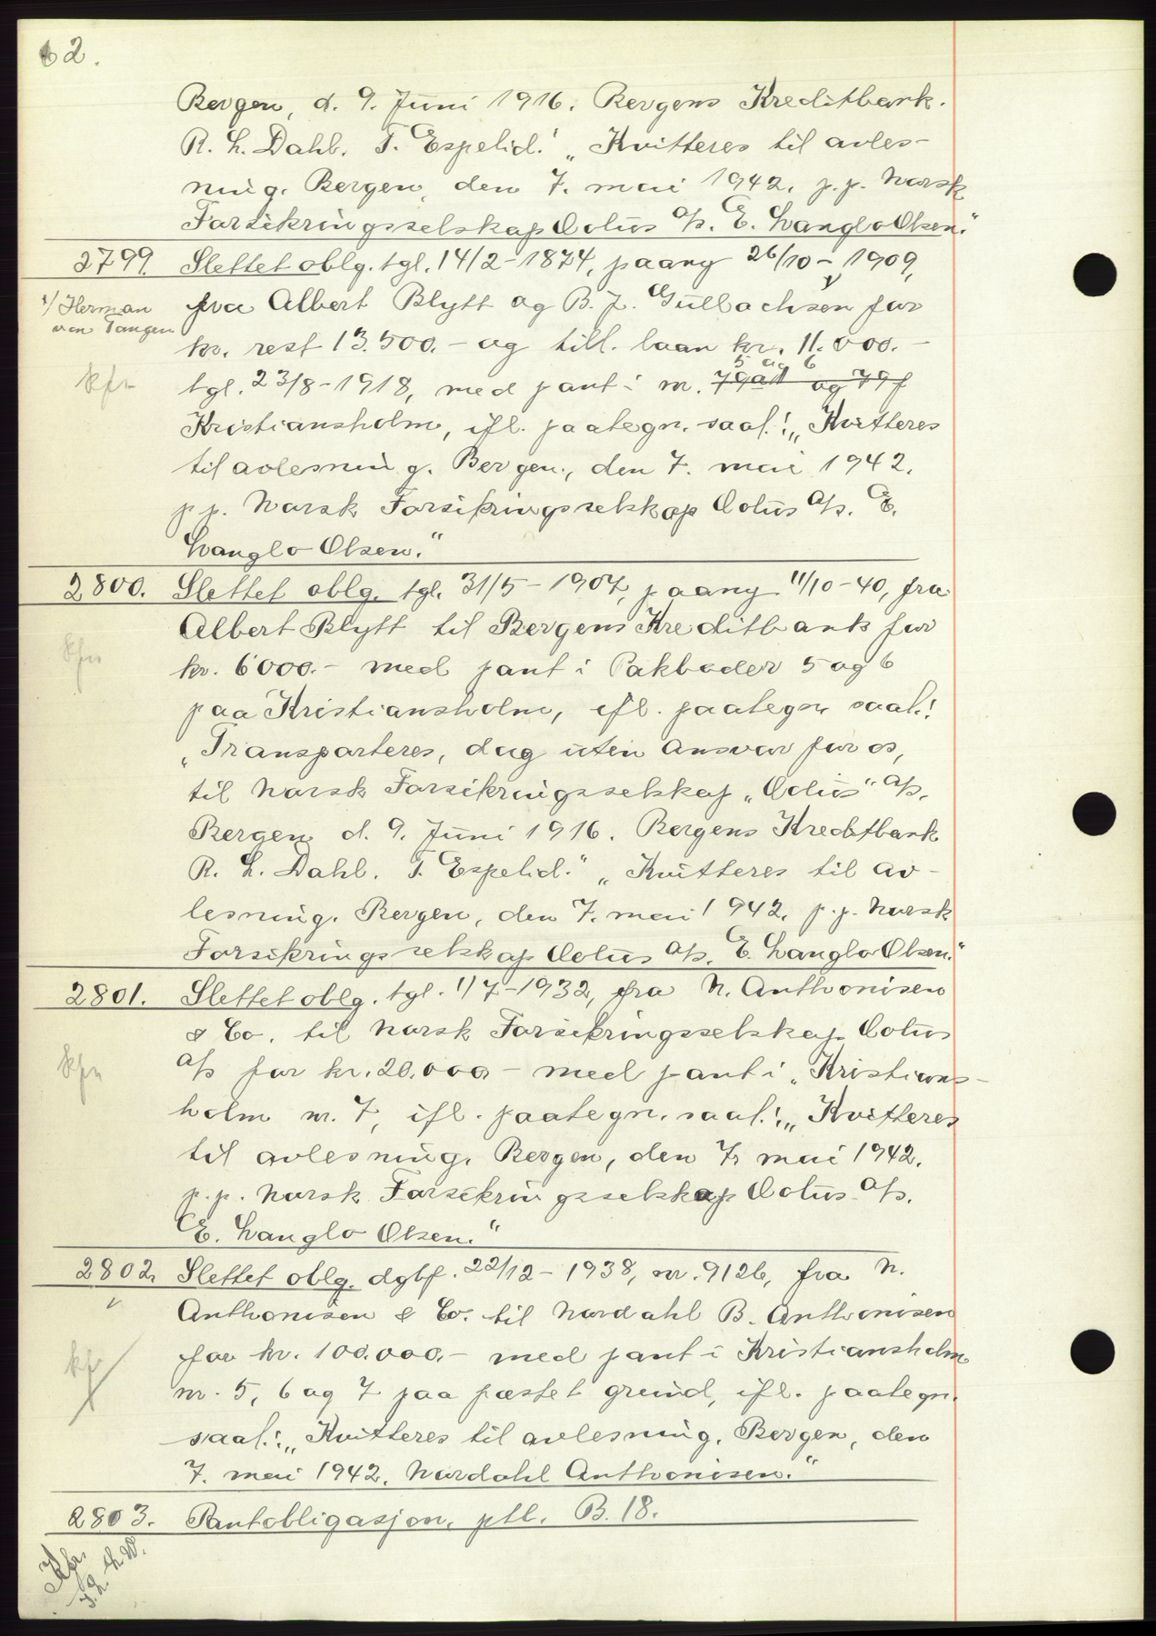 62.
Bergen, d. 9. Juni 1916. Bergens Kreditbank.
R. L. Dahl. T. Espelid." „Kvitteres til avles-
ning. Bergen, den 7. mai 1942. p.p. Norsk
Forsikringsselskap Dolus A/s. E. Langlo Olsen."
2799. Slettet oblg. tgl. 14/2-1874, paany 26/10-1909,
1/ Herman
von Tangen
fra Albert Blytt og B. J. Gulbachsen for
kr. rest 13.500.- og till. laan kr. 11.000.-
5 og 6
kfr
tgl. 23/8-1918, med pant i nr. 79a1 og 79f
Kristiansholm, ifl. paategn. saal.: „Kvitteres
til avlesning. Bergen, den 7. mai 1942.
p.p. Norsk Forsikringsselskap Dolus A/s. E.
Langlo Olsen."
2800. Slettet oblg. tgl. 31/5-1907, paany 11/10-40, fra
Albert Blytt til Bergens Kreditbank for
kfr
kr. 6000.- med pant i Pakboder 5 og 6
paa Kristiansholm, ifl. paategn saal.:
„Transporteres, dog uten ansvar for os,
til Norsk Forsikringsselskap „Dolus" A/s.
Bergen d. 9. Juni 1916. Bergens Kreditbank
R. L. Dahl. T. Espelid." „Kvitteres til av-
lesning. Bergen, den 7. mai 1942. p.p. Norsk
Forsikringsselskap Dolus A/s. E. Langlo Olsen."
2801. Slettet oblg. tgl. 1/7-1932, fra N. Anthonisen
& Co. til Norsk Forsikringsselskap Dolus
kfr
A/s for kr. 20.000.- med pant i „Kristians-
holm nr. 7, ifl. paategn. saal.: „Kvitteres
til avlesning. Bergen, den 7. mai 1942.
p.p. Norsk Forsikringsselskap Dolus A/s.
E. Langlo Olsen."
2802. Slettet oblg. dgbf. 22/12-1938, nr. 9126, fra N.
Anthonisen & Co. til Nordahl B. Anthonisen
kfr
for kr. 100.000.- med pant i Kristiansholm
nr. 5, 6 og 7 paa fæstet grund, ifl. paategn.
saal.: „Kvitteres til avlesning. Bergen, den
7. mai 1942. Nordahl Anthonisen."
2803. Pantobligasjon. ptl. B. 18.
Kfr.